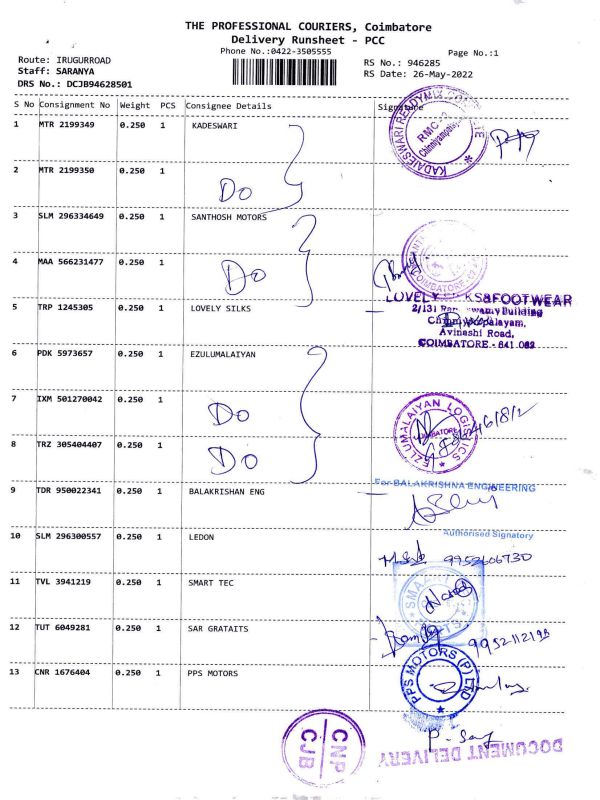 THE PROFESSIONAL COURIERS, Coimbatore
Delivery Runsheet - PCC
Phone No.:0422-3505555
Page No.:1
Route: IRUGURROAD
Staff: SARANYA
DRS No.: DCJB94628501
RS No.: 946285
RS Date: 26-May-2022
S No Consignment No Weight PCS Consignee Details Signature
1 MTR 2199349 0.250 1 KADESWARI
KADAIESWARI READYMIX CONCRETE
RMC-2
Chinniyampalayam
2 MTR 2199350 0.250 1 Do
3 SLM 296334649 0.250 1 SANTHOSH MOTORS
4 MAA 566231477 0.250 1 Do
COIMBATORE
5 TRP 1245305 0.250 1 LOVELY SILKS
LOVELY SILKS&FOOTWEAR
2/131 Building
Avinashi Road,
COIMBATORE - 641 062
6 PDK 5973657 0.250 1 EZULUMALAIYAN
7 IXM 501270042 0.250 1 Do
EZLUMALAIYAN LOGISTICS
COIMBATORE
8 TRZ 305404407 0.250 1 Do
9 TDR 950022341 0.250 1 BALAKRISHAN ENG
For BALAKRISHNA ENGINEERING
Authorised Signatory
10 SLM 296300557 0.250 1 LEDON
9952606730
11 TVL 3941219 0.250 1 SMART TEC
12 TUT 6049281 0.250 1 SAR GRATAITS
13 CNR 1676404 0.250 1 PPS MOTORS
PPS MOTORS (P) LTD
CNP
CJB
DOCUMENT DELIVERY